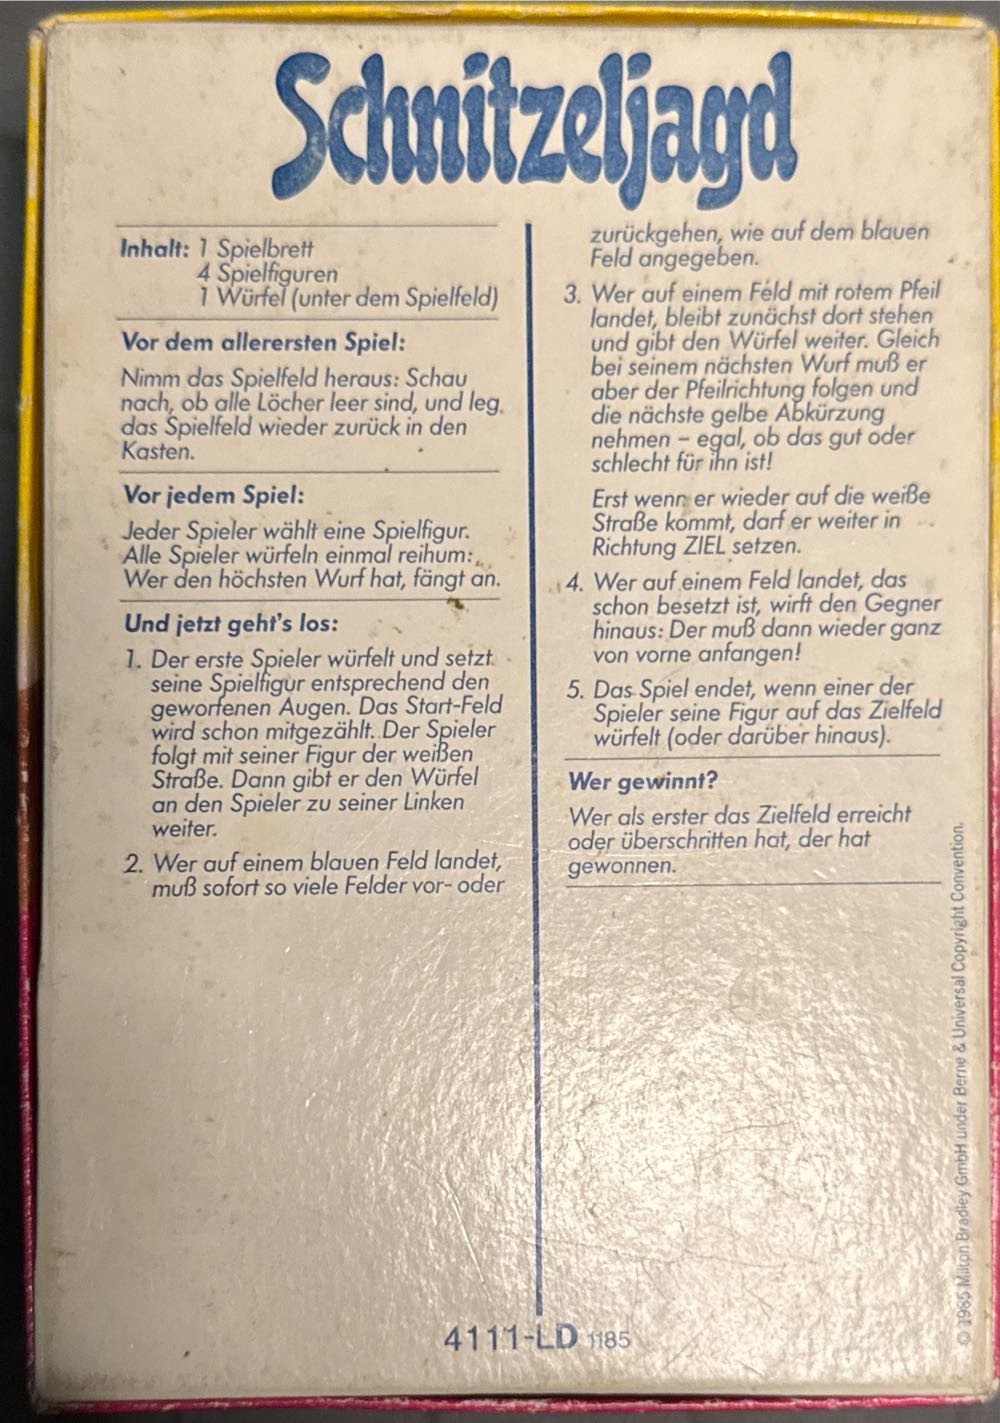 Schnitzeljagd
Inhalt: 1 Spielbrett
4 Spielfiguren
1 Würfel (unter dem Spielfeld)
Vor dem allerersten Spiel:
Nimm das Spielfeld heraus: Schau
nach, ob alle Löcher leer sind, und leg
das Spielfeld wieder zurück in den
Kasten.
Vor jedem Spiel:
Jeder Spieler wählt eine Spielfigur.
Alle Spieler würfeln einmal reihum:
Wer den höchsten Wurf hat, fängt an.
Und jetzt geht's los:
1. Der erste Spieler würfelt und setzt
seine Spielfigur entsprechend den
geworfenen Augen. Das Start-Feld
wird schon mitgezählt. Der Spieler
folgt mit seiner Figur der weißen
Straße. Dann gibt er den Würfel
an den Spieler zu seiner Linken
weiter.
2. Wer auf einem blauen Feld landet,
muß sofort so viele Felder vor- oder
zurückgehen, wie auf dem blauen
Feld angegeben.
3. Wer auf einem Feld mit rotem Pfeil
landet, bleibt zunächst dort stehen
und gibt den Würfel weiter. Gleich
bei seinem nächsten Wurf muß er
aber der Pfeilrichtung folgen und
die nächste gelbe Abkürzung
nehmen – egal, ob das gut oder
schlecht für ihn ist!
Erst wenn er wieder auf die weiße
Straße kommt, darf er weiter in
Richtung ZIEL setzen.
4. Wer auf einem Feld landet, das
schon besetzt ist, wirft den Gegner
hinaus: Der muß dann wieder ganz
von vorne anfangen!
5. Das Spiel endet, wenn einer der
Spieler seine Figur auf das Zielfeld
würfelt (oder darüber hinaus).
Wer gewinnt?
Wer als erster das Zielfeld erreicht
oder überschritten hat, der hat
gewonnen.
© 1985 Milton Bradley GmbH under Berne & Universal Copyright Convention.
4111-LD 1185